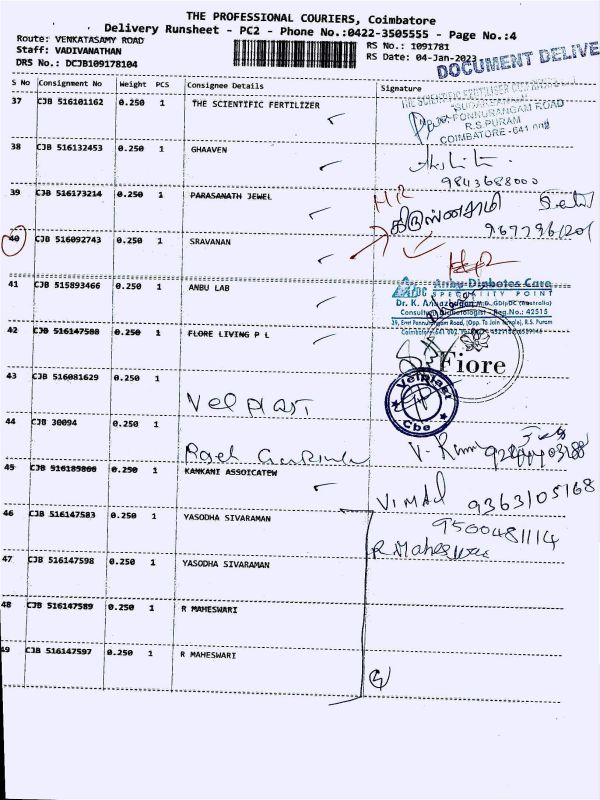 THE PROFESSIONAL COURIERS, Coimbatore
Delivery Runsheet - PC2 - Phone No.:0422-3505555 - Page No.:4
Route: VENKATASAMY ROAD
Staff: VADIVANATHAN
DRS No.: DCJB109178104
RS No.: 1091781
RS Date: 04-Jan-2023
DOCUMENT DELIVE
S No Consignment No Weight PCS Consignee Details Signature
37 CJB 516101162 0.250 1 THE SCIENTIFIC FERTILIZER
THE SCIENTIFIC FERTILISER
PONNURANGAM ROAD
R.S.PURAM
COIMBATORE - 641
38 CJB 516132453 0.250 1 GHAAVEN
9843688000
39 CJB 516173214 0.250 1 PARASANATH JEWEL
40 CJB 516092743 0.250 1 SRAVANAN
41 CJB 515893466 0.250 1 ANBU LAB
Anbu Diabetes Care
SPECIALITY POINT
Reg.No.: 42515
42 CJB 516147588 0.250 1 FLORE LIVING P L
Fiore
43 CJB 516081629 0.250 1 Velplast
Velplast
Cbe
44 CJB 30094 0.250 1
45 CJB 516189866 0.250 1 KANKANI ASSOICATEW
VIMAL 9363105168
46 CJB 516147583 0.250 1 YASODHA SIVARAMAN
9500481114
R Maheswari
47 CJB 516147598 0.250 1 YASODHA SIVARAMAN
48 CJB 516147589 0.250 1 R MAHESWARI
49 CJB 516147597 0.250 1 R MAHESWARI